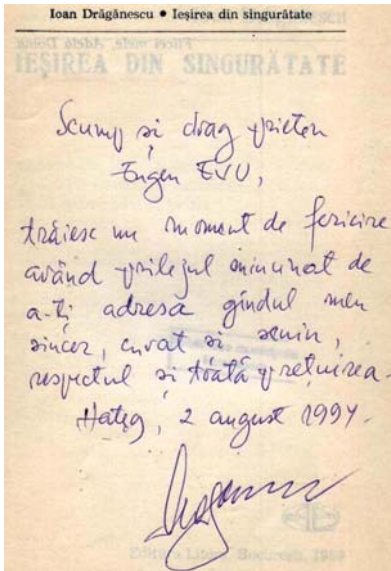 Ioan Drăgănescu • Ieșirea din singurătate
IEȘIREA DIN SINGURĂTATE
Scump și drag prieten
Eugen EVU,
trăiesc un moment de fericire
având prilejul minunat de
a-ți adresa gîndul meu
sincer, curat si senin,
respectul si toată prețuirea.
Hațeg, 2 august 1997.
Editura Litera, București, 1989